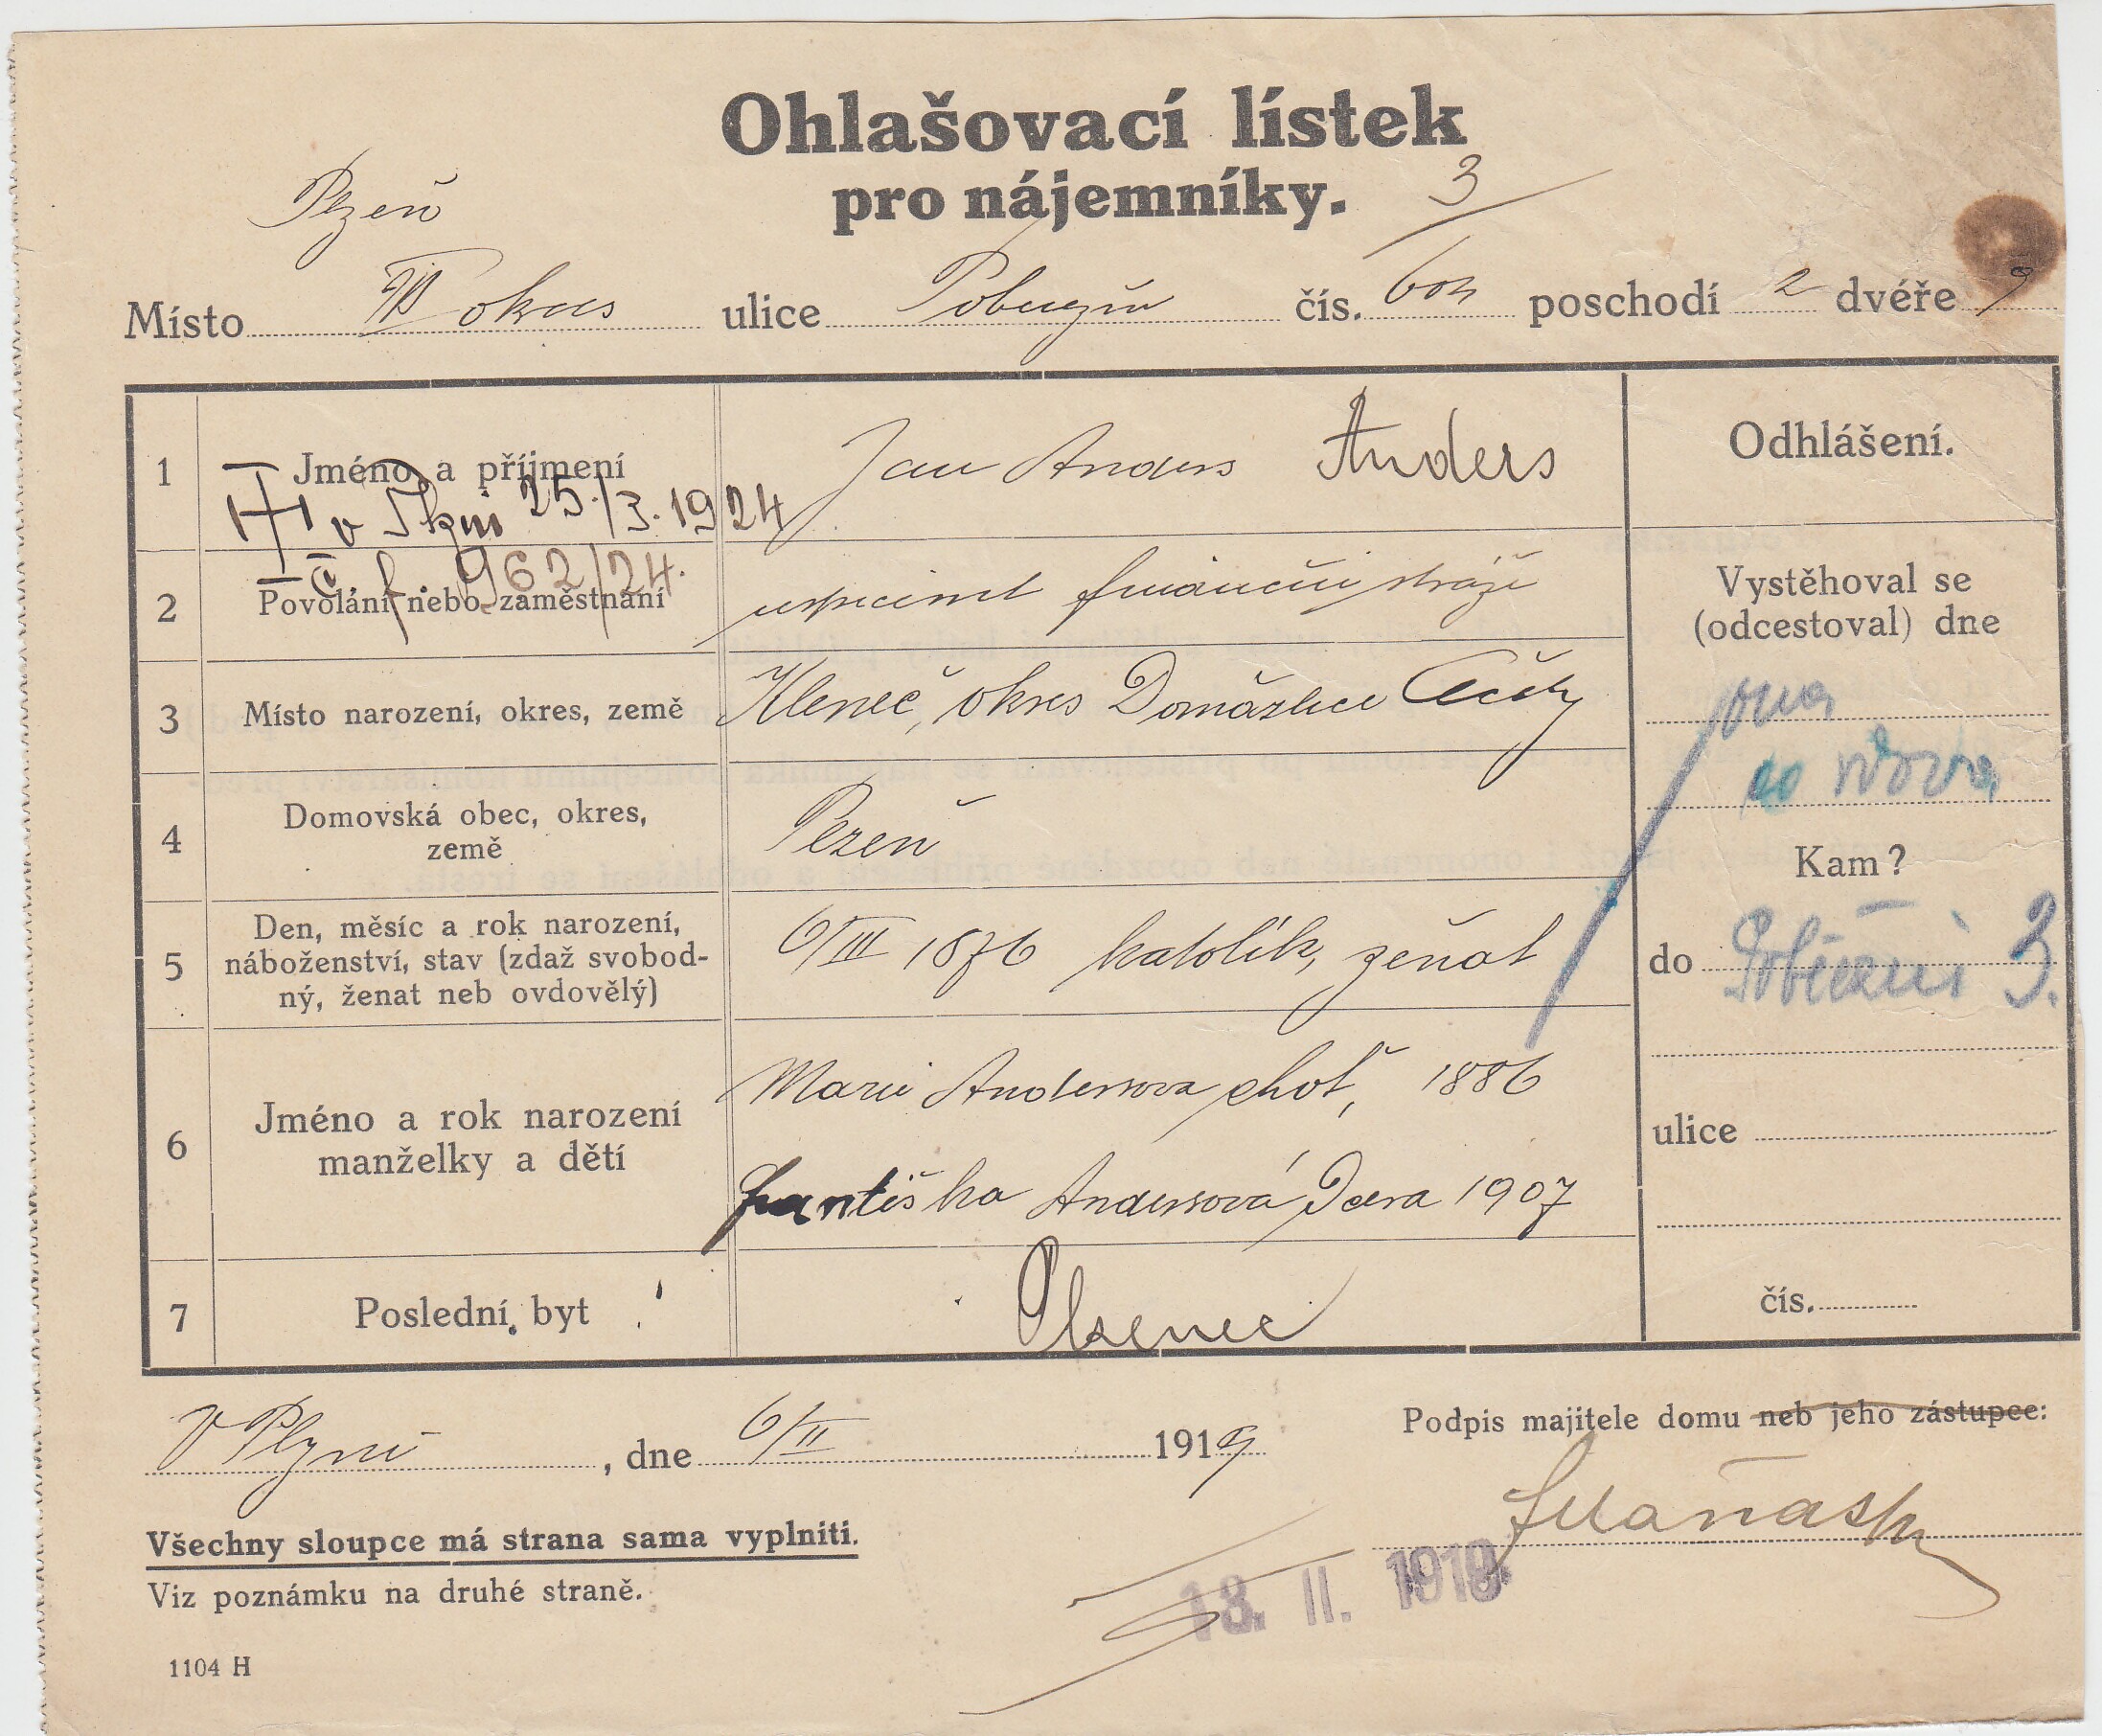 Ohlašovací lístek
pro nájemníky.
3
Plzeň
Místo III okres ulice čís. poschodí 2 dvéře 9
1 Jméno a příjmení Jan Anders Anders
v 25./3. 1924
Č. f. 962/24.
2 Povolání nebo zaměstnání finanční stráže
3 Místo narození, okres, země Kleneč, okres Domažlice Čechy
4 Domovská obec, okres,
země
Plzeň
5 Den, měsíc a rok narození,
náboženství, stav (zdaž svobod-
ný, ženat neb ovdovělý)
6/III 1876 katolík, ženat
6 Jméno a rok narození
manželky a dětí
Marie Andersova choť, 1886
Františka Andersová Dcera 1907
7 Poslední byt
Odhlášení.
Vystěhoval se
(odcestoval) dne
vdova
Kam?
do 3.
ulice
čís.
V Plzni, dne 6/II 1919
Podpis majitele domu neb jeho zástupce:
Všechny sloupce má strana sama vyplniti.
Viz poznámku na druhé straně.
13. II. 1919.
1104 H